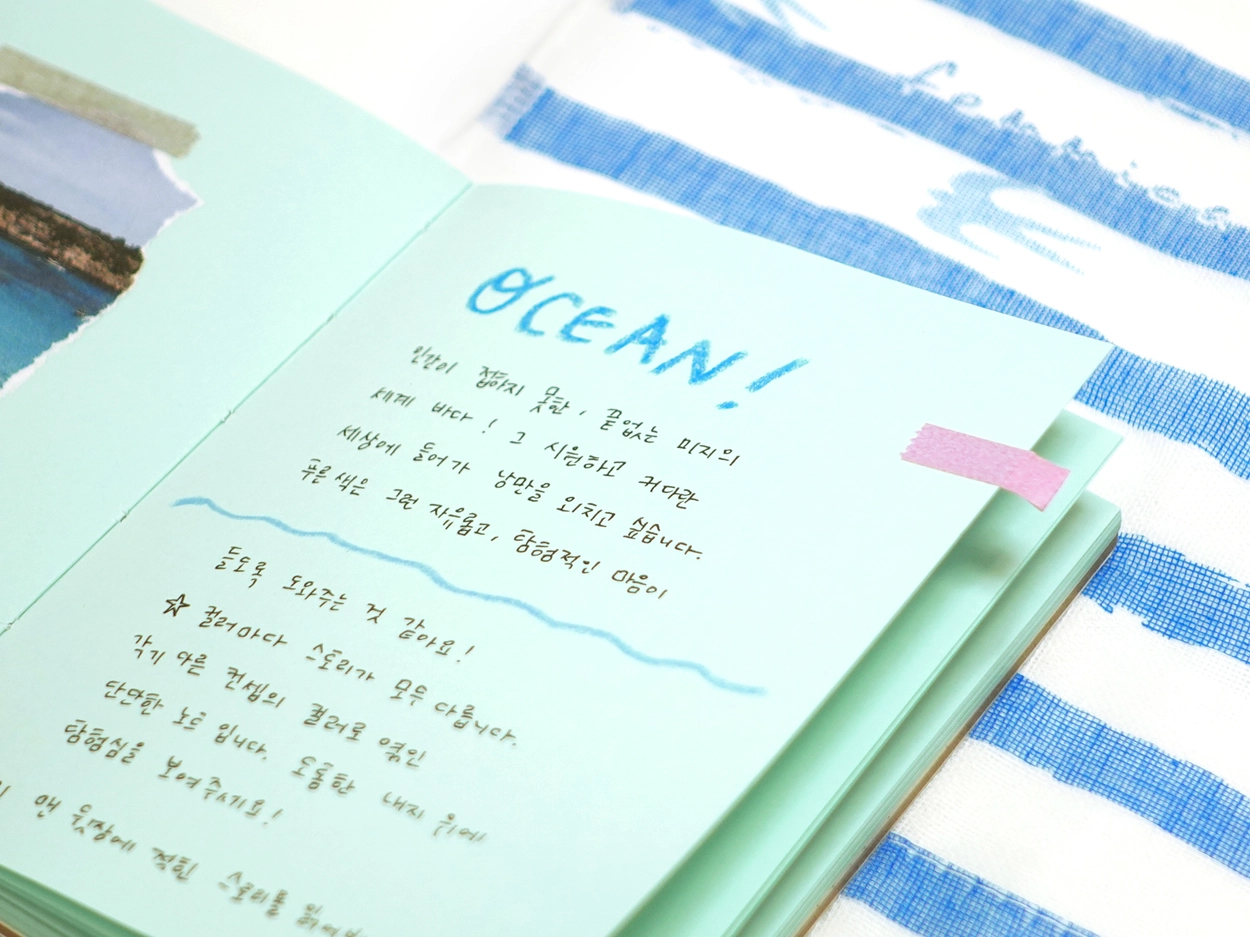 OCEAN!
인간이 접하지 못한, 끝없는 미지의
세계 바다! 그 시원하고 커다란
세상에 들어가 낭만을 외치고 싶습니다.
푸른색은 그런 자유롭고, 탐험적인 마음이
들도록 도와주는 것 같아요!
☆ 컬러마다 스토리가 모두 다릅니다.
각기 다른 컨셉의 컬러로 엮인
단단한 노트 입니다. 도톰한 내지 위에
탐험심을 보여주시기요!
맨 뒷장에 적힌 스토리를